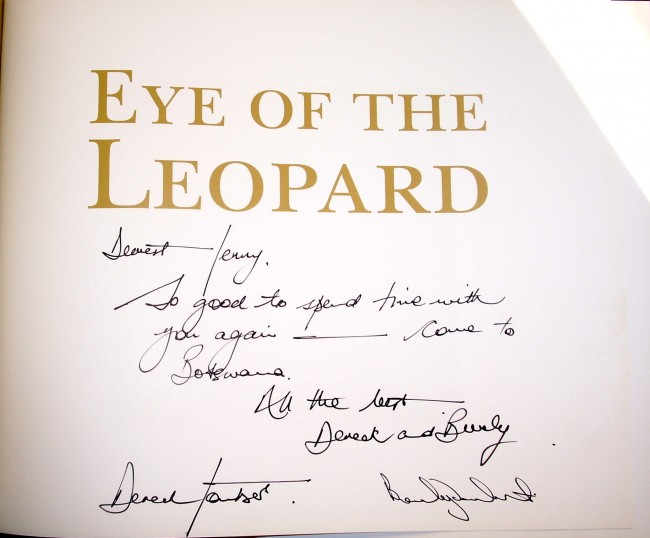 EYE OF THE
LEOPARD
Dearest Jenny,
So good to spend time with
you again — come to
Botswana.
All the best
Dereck and Beverly.
Dereck Joubert.
Beverly Joubert